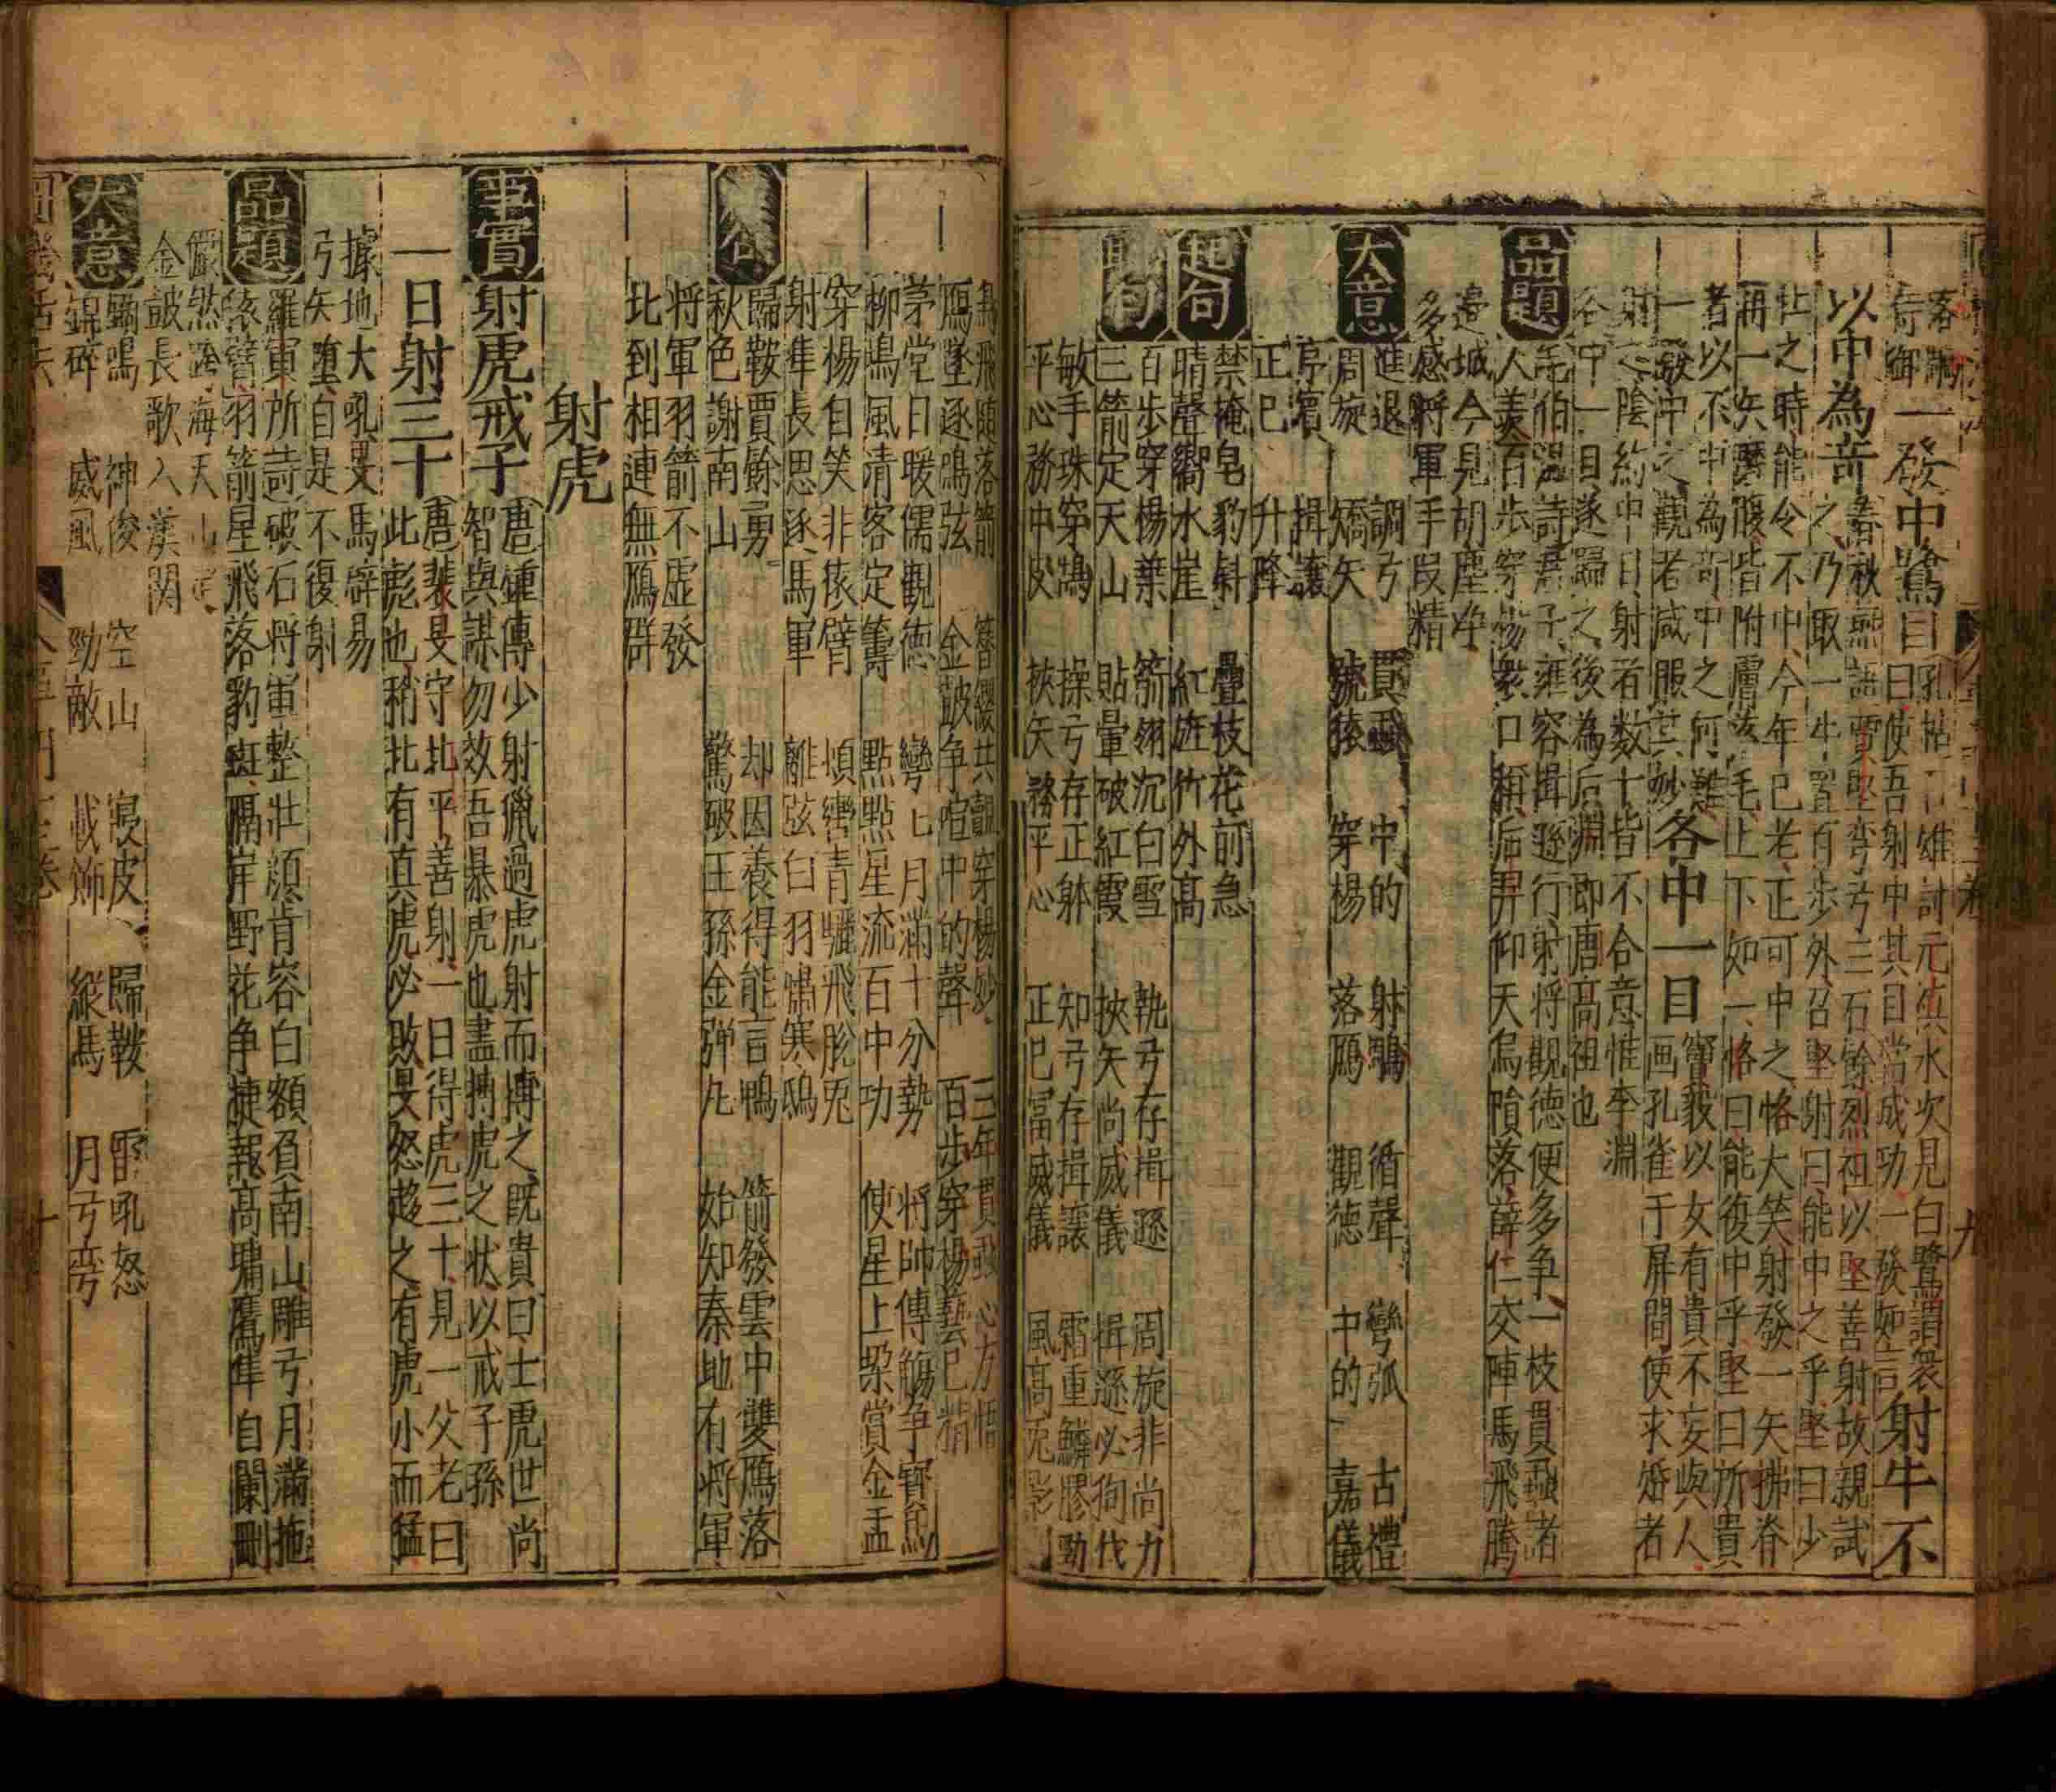 落鵰
侍御一發中鷺目
曰使吾射中其目當成功一發如言射牛不
以中為奇
春秋 燕語賈堅弯弓三石餘烈祖以堅善射故親試
之乃取一牛置百步外召堅射曰能中之乎堅曰少
壮之時能令不中今年已老正可中之恪大笑射發一矢拂脊
再一矢磨腹皆附膚落毛上下如一恪曰能復中乎堅曰所貴
者以不中為奇中之何難
一發中之觀者咸服其妙各中一目
竇毅以女有貴不妄與人
画孔雀于屏間使求婚者
射之陰約中目射者数十皆不合意惟李淵
各中一目遂歸之後為后淵即唐高祖也
品題
伯温詩君子雍容揖遜行射将觀德便多争一枝貫虱者
人羨百步穿楊衆口稱后羿仰天烏隕落薛仁交陣馬飛騰
邉城今見胡塵净
多感将軍手叚精
大意
進退 調弓 貫虱 中的 射鵰 循聲 彎弧 古禮
周旋 矯矢 號猿 穿楊 落鴈 觀德 中的 嘉儀
序賓 揖讓
正已 升降
起句
禁掩皂豹斜 疊枝花前急
晴聲嚮水崖 紅旌竹外高
聯句
百步穿楊葉 箭翎沉白雪 執弓存揖遜 周旋非尚力
三箭定天山 貼暈破紅霞 挾矢尚威儀 揖遜必狥代
敏手珠穿鵠 操弓存正躰 知弓存揖讓 霜重鱗膠勁
平心務中皮 挾矢務平心 正已冨威儀 風高兎影
鳥飛随落箭 簪纓共覩穿楊妙 三年貫虱心方悟
鴈墜逐鳴弦 金鼓争喧中的聲 百步穿楊藝已精
茅堂日暖儒觀德 彎七月滿十分勢 将帥傳觴争寳馬
柳塢風清客定籌 點點星流百中功 使星上梁賞金盂
穿楊自笑非猿臂 頃轡青驪飛脫兎
射隼長思逐馬軍 離弦白羽嘯寒鴟
歸鞍賈餘勇 却因養得能言鴨 箭發雲中雙鴈落
秋色謝南山 驚破王孫金弹丸 始知秦地有将軍
将軍羽箭不虚發
比到相連無鴈群
射虎
事實
射虎戒子
唐鍾傳少射獵過虎射而搏之既貴曰士虎世尚
智與謀勿效吾暴虎也畫搏虎之状以戒子孫
一日射三十
唐裴旻守北平善射一日得虎三十見一父老曰
此彪也稍北有真虎必敗旻怒趍之有虎小而猛
據地大吼旻馬辟易
弓矢墮自是不復射
品題
羅軍所詩破石将軍整壮顔肯容白額負南山雕弓月滿拖
猿臂羽箭星飛落豹班隔岸野花争捷報高墉鷹隼自闌刪
儼然海天山
金鼓長歌入漢関
大意
鵰鳴 神俊 空山 寝皮 歸鞍 雷吼怒
錦碎 威風 勁敵 載飾 縱馬 月弓弯